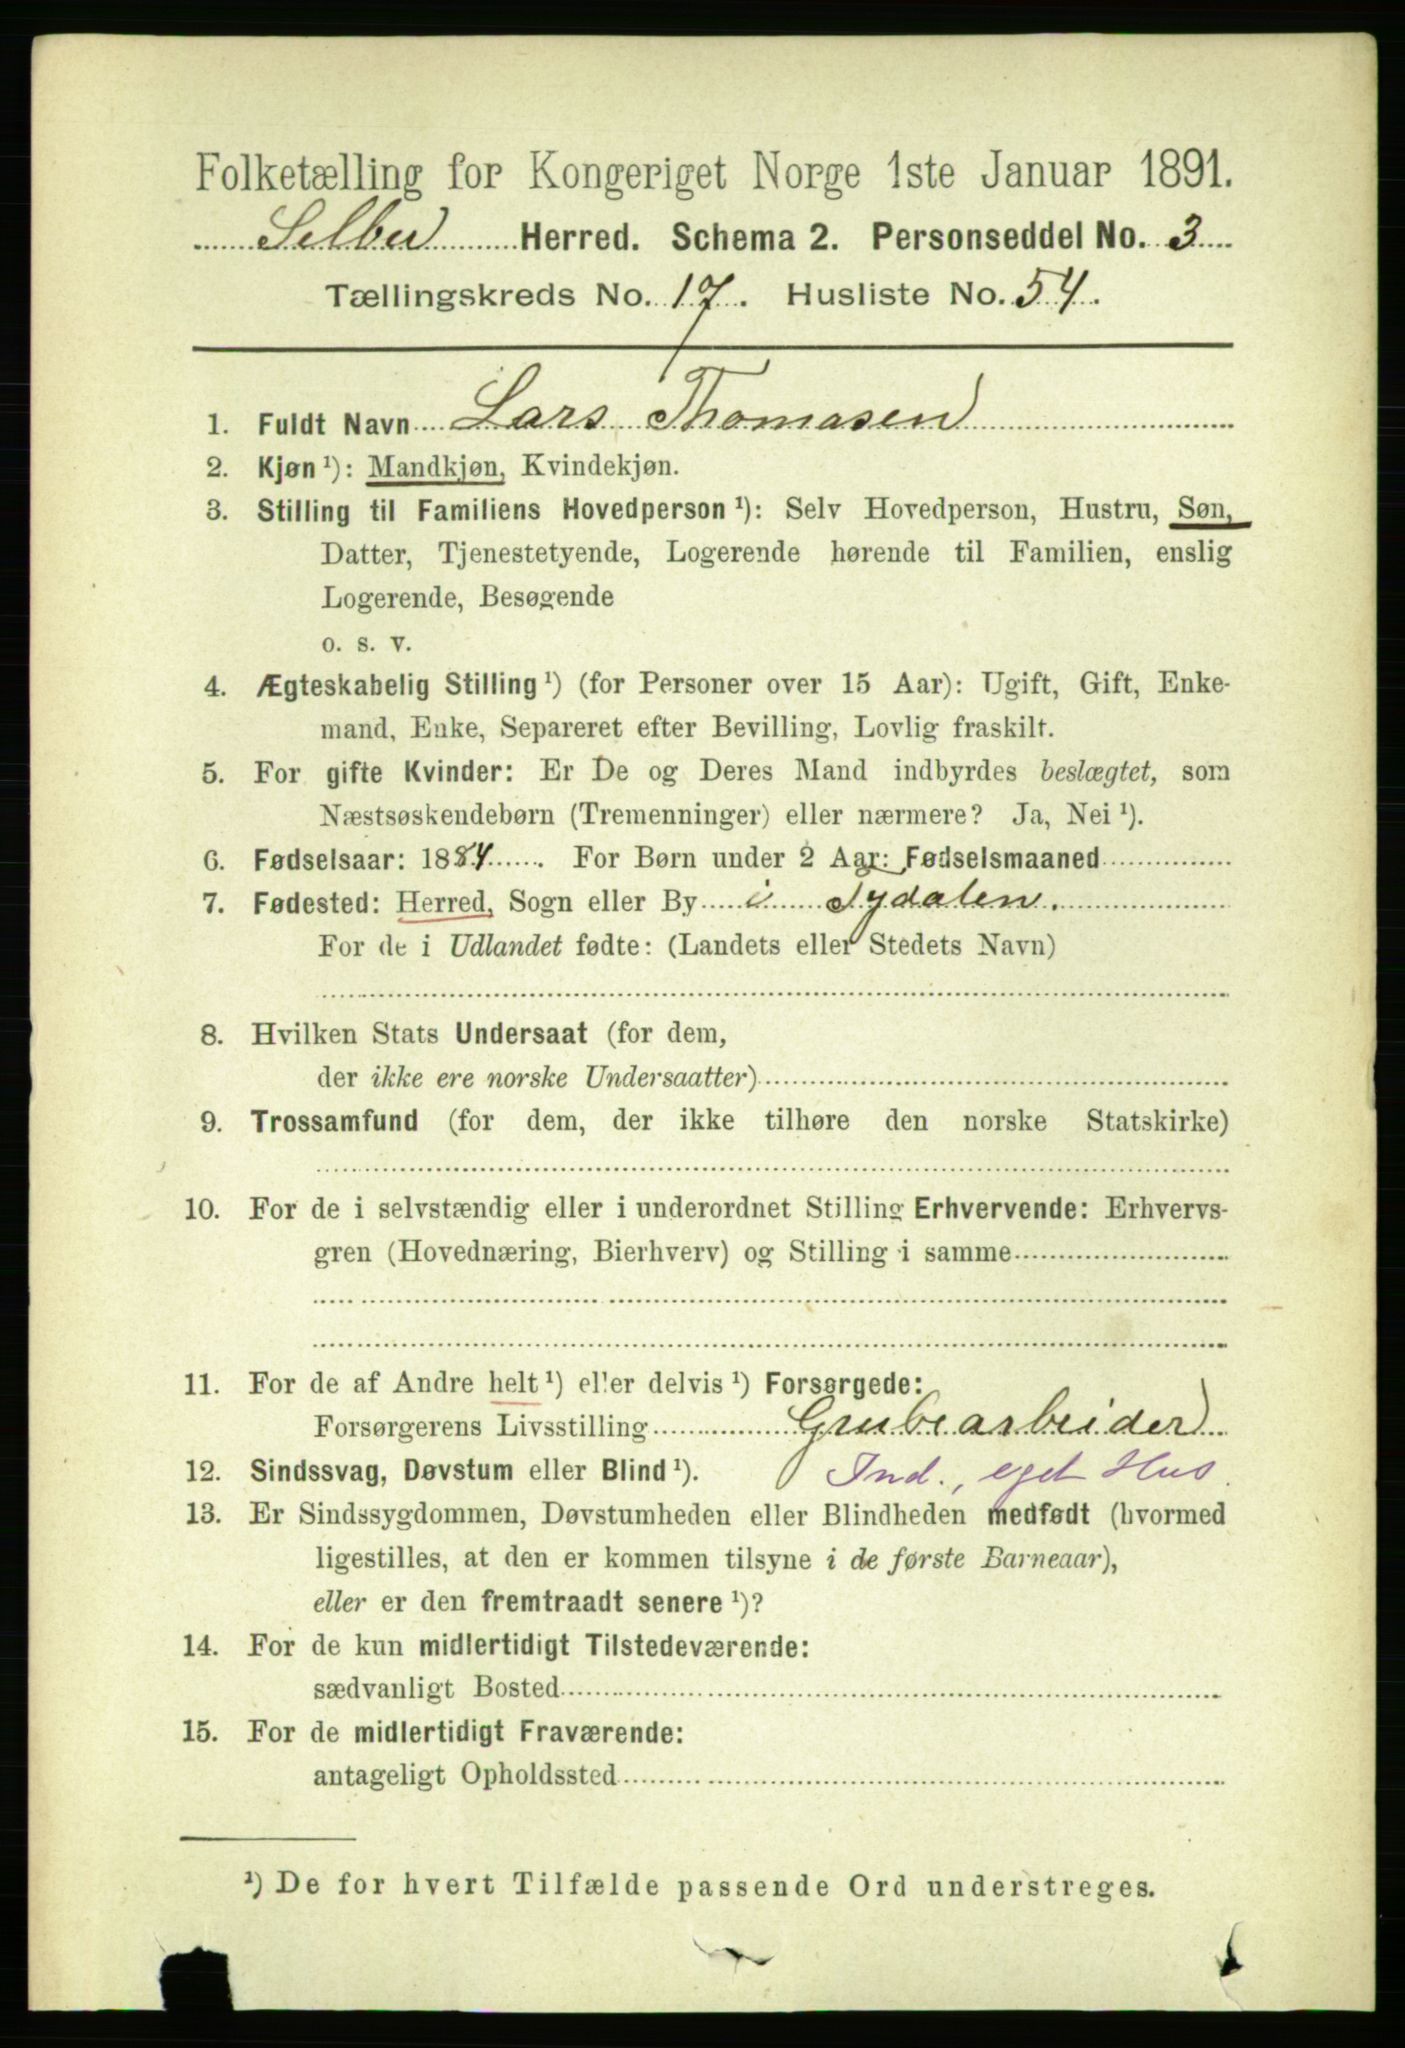 Folketælling for Kongeriget Norge 1ste Januar 1891.
Selbu Herred. Schema 2. Personseddel No. 3
Tællingskreds No. 17. Husliste No. 54.
1. Fuldt Navn Lars Thomasen
2. Kjøn ¹): Mandkjøn, Kvindekjøn.
3. Stilling til Familiens Hovedperson ¹): Selv Hovedperson, Hustru, Søn,
Datter, Tjenestetyende, Logerende hørende til Familien, enslig
Logerende, Besøgende
o. s. v.
4. Ægteskabelig Stilling ¹) (for Personer over 15 Aar): Ugift, Gift, Enke-
mand, Enke, Separeret efter Bevilling, Lovlig fraskilt.
5. For gifte Kvinder: Er De og Deres Mand indbyrdes beslægtet, som
Næstsøskendebørn (Tremenninger) eller nærmere? Ja, Nei ¹).
6. Fødselsaar: 1884. For Børn under 2 Aar: Fødselsmaaned
7. Fødested: Herred, Sogn eller By i Tydalen.
For de i Udlandet fødte: (Landets eller Stedets Navn)
8. Hvilken Stats Undersaat (for dem,
der ikke ere norske Undersaatter)
9. Trossamfund (for dem, der ikke tilhøre den norske Statskirke)
10. For de i selvstændig eller i underordnet Stilling Erhvervende: Erhvervs-
gren (Hovednæring, Bierhverv) og Stilling i samme
11. For de af Andre helt ¹) eller delvis ¹) Forsørgede:
Forsørgerens Livsstilling Grubearbeider
12. Sindssvag, Døvstum eller Blind ¹). Ind., eget Hus.
13. Er Sindssygdommen, Døvstumheden eller Blindheden medfødt (hvormed
ligestilles, at den er kommen tilsyne i de første Barneaar),
eller er den fremtraadt senere ¹)?
14. For de kun midlertidigt Tilstedeværende:
sædvanligt Bosted
15. For de midlertidigt Fraværende:
antageligt Opholdssted
¹) De for hvert Tilfælde passende Ord understreges.